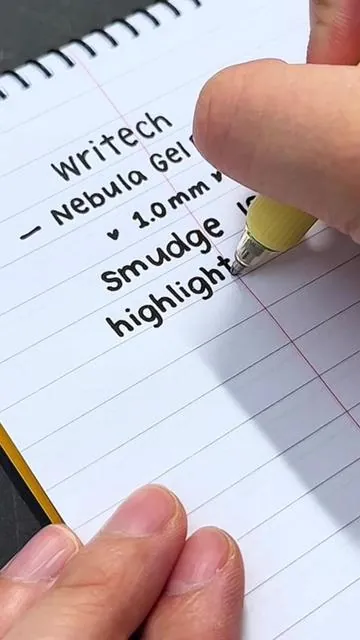 Writech
– Nebula Gel
♥ 1.0 mm ♥
smudge
highlight